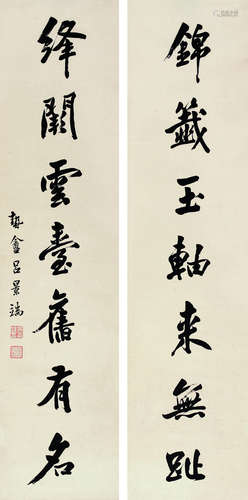 錦籤玉軸來無趾
絳闕雲臺舊有名
蟄盦呂景端